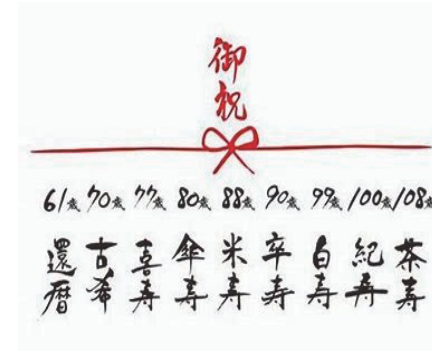 御祝
61歳 70歳 77歳 80歳 88歳 90歳 99歳 100歳 108歳
還暦 古希 喜寿 傘寿 米寿 卒寿 白寿 紀寿 茶寿